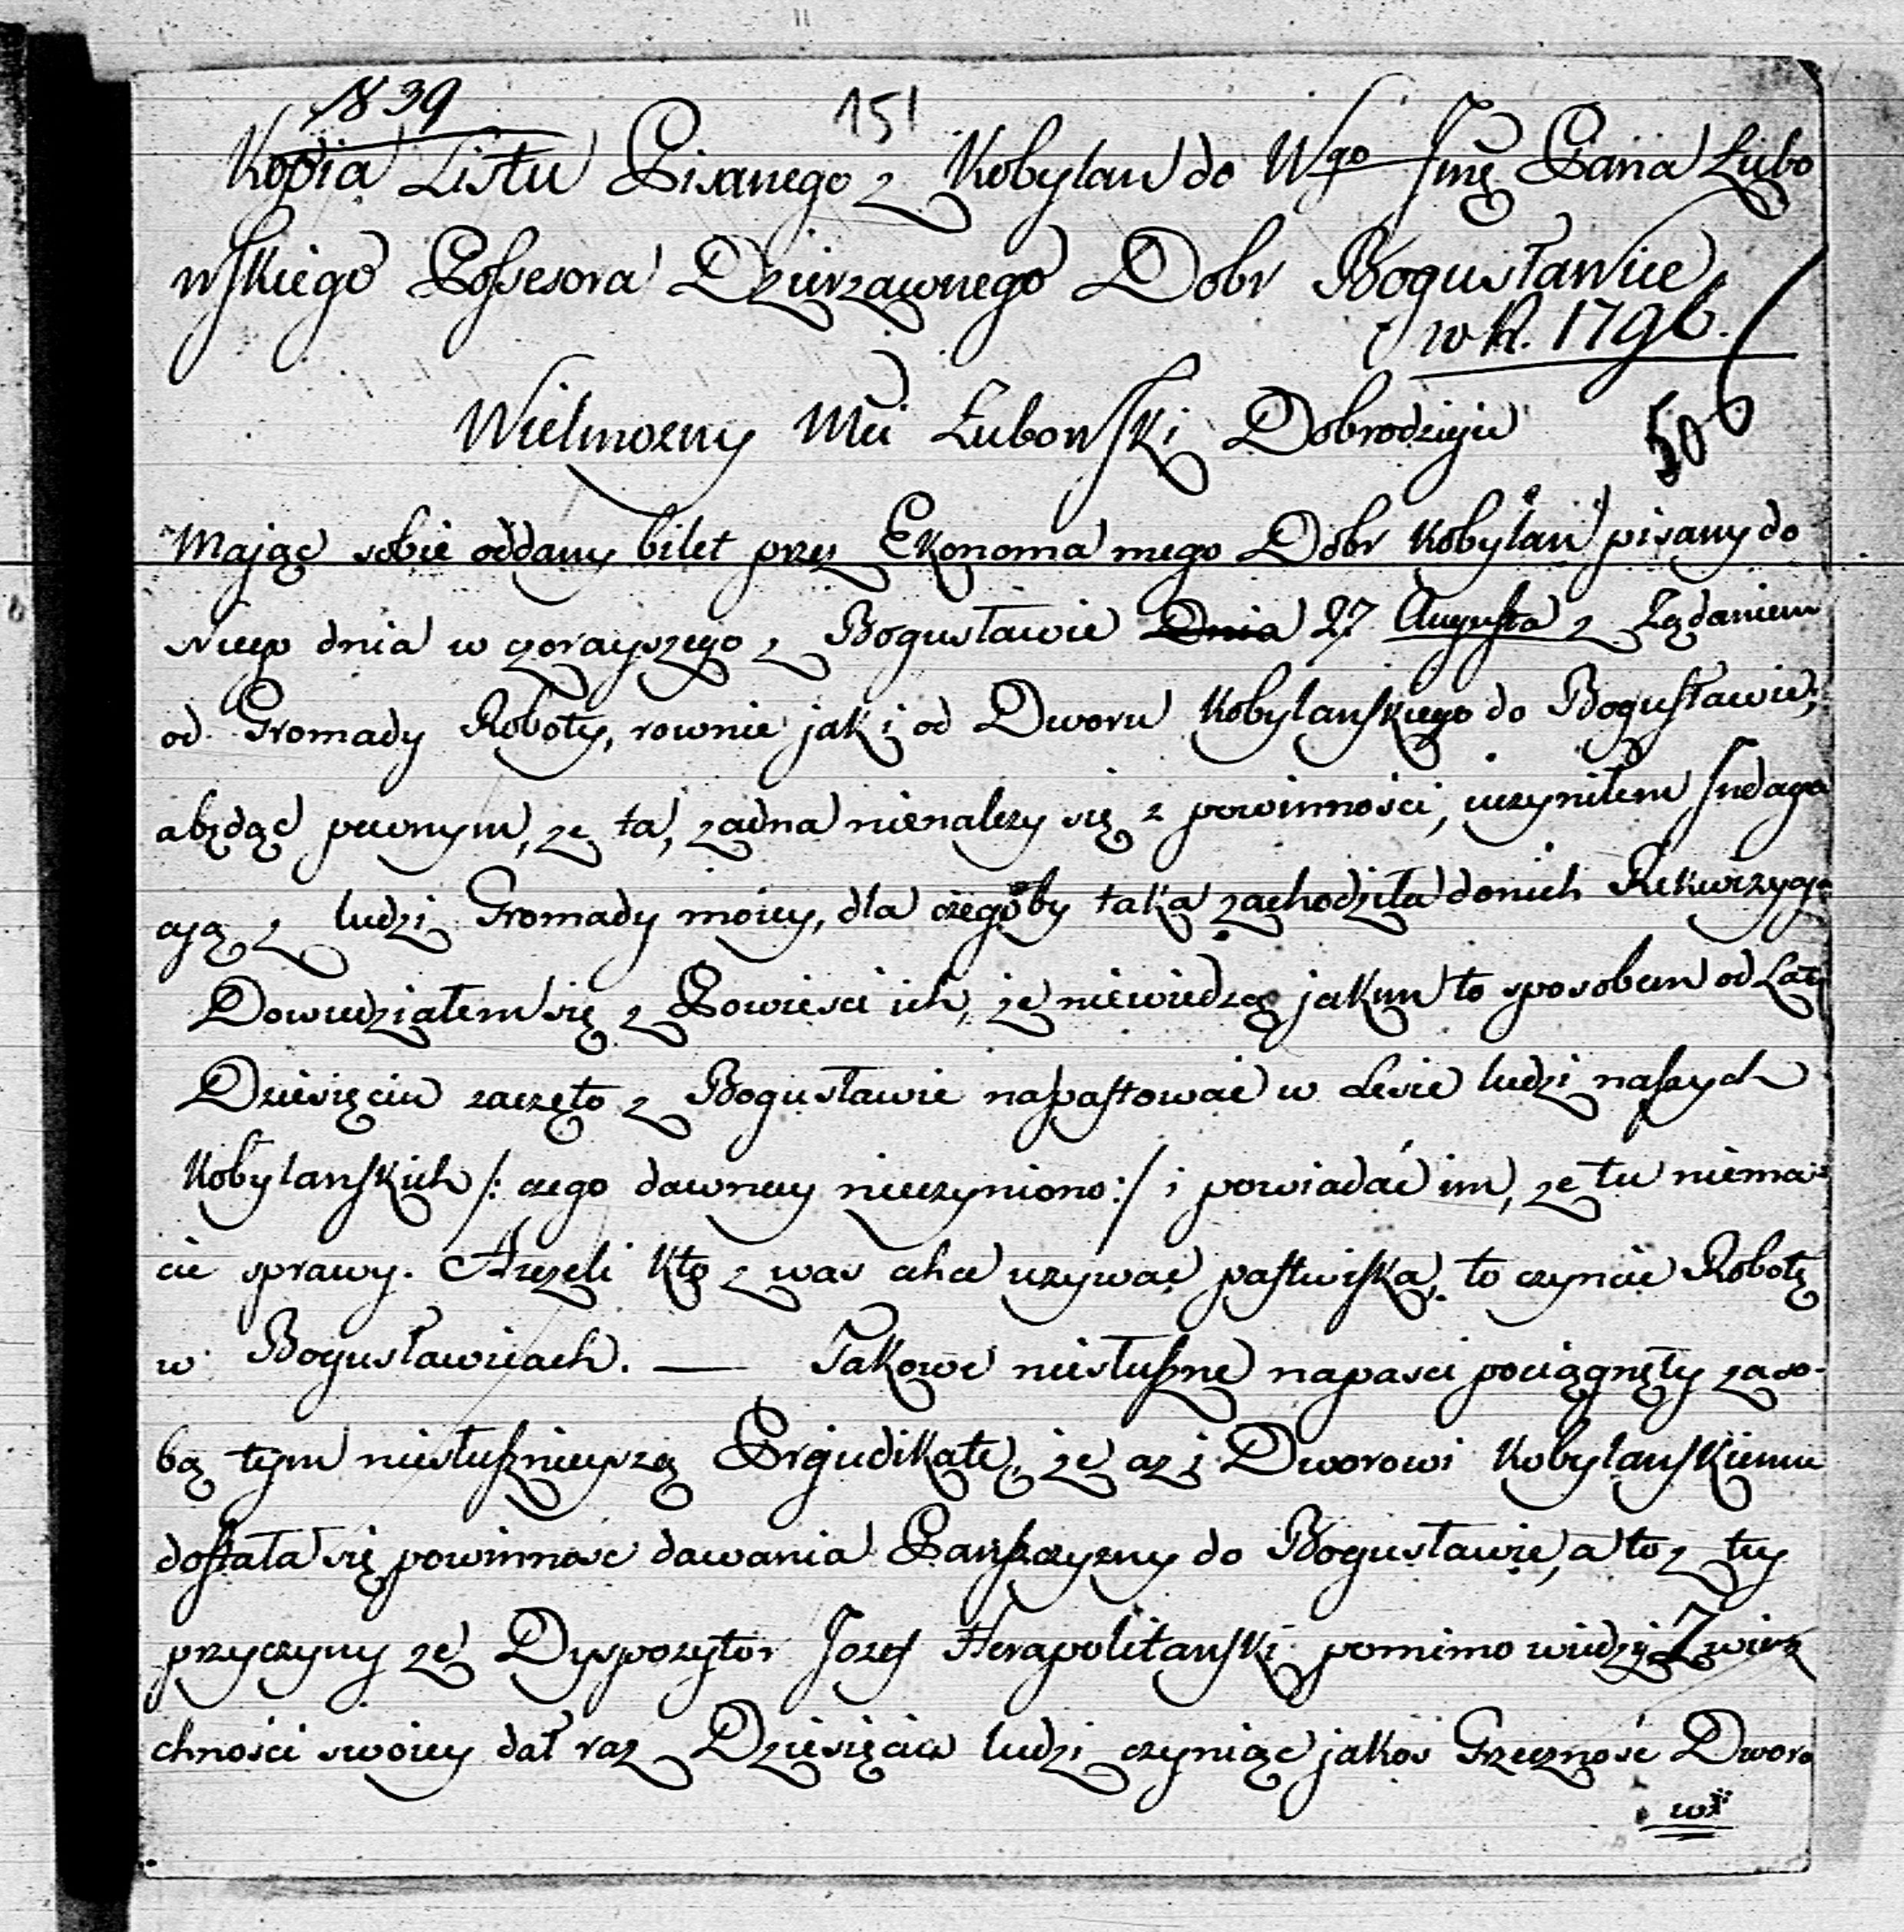 1839
151
Kopia Listu Pisanego z Kobylan do Wgo Jmę Pana Łubo
wskiego Possesora Dzierzawnego Dobr Bogusławice
w R. 1796.
506
Wielmozny Mci Łubowski Dobrodzieju
Mając sobie oddany bilet przez Ekonoma mego Dobr Kobylan pisany do
Niego dnia wczorayszego z Bogusławic Dnia 27 Augusta z Żądaniem
od Gromady Roboty, rownie jak i od Dworu Kobylanskiego do Bogusławic;
abędąc pewnym, ze ta, zadna nienalezy się z powinności, uczyniłem Indaga
cyą z ludzi Gromady moiey, dla czegoby taka zachodziła donich Rekwizycya
Dowiedziałem się z Powiesci ich, że niewiedzą jakim to sposobem od Lat
Dziesięciu zaczęto z Bogusławic napastować w Lesie ludzi naszych
Kobylanskich /: czego dawniey nieczyniono :/ i powiadać im, ze tu niema=
cie sprawy. A jezeli kto z was chce uzywać pastwiska, to czyncie Robotę
w Bogusławicach. — Takowe niesłuszne napasci pociągnęły zaso-
bą tym niesłusznieyszą Prejudikatę, że az i Dworowi Kobylanskiemu
dostała się powinnosc dawania Panszczyzny do Bogusławic, a to z tey
przyczyny ze Dyspozytor Jozef Hierapolitanski pomimo wiedzy Zwierz
chności swoiey dał raz Dziesięciu ludzi czyniąc jakos Grzeczność Dworo
wi